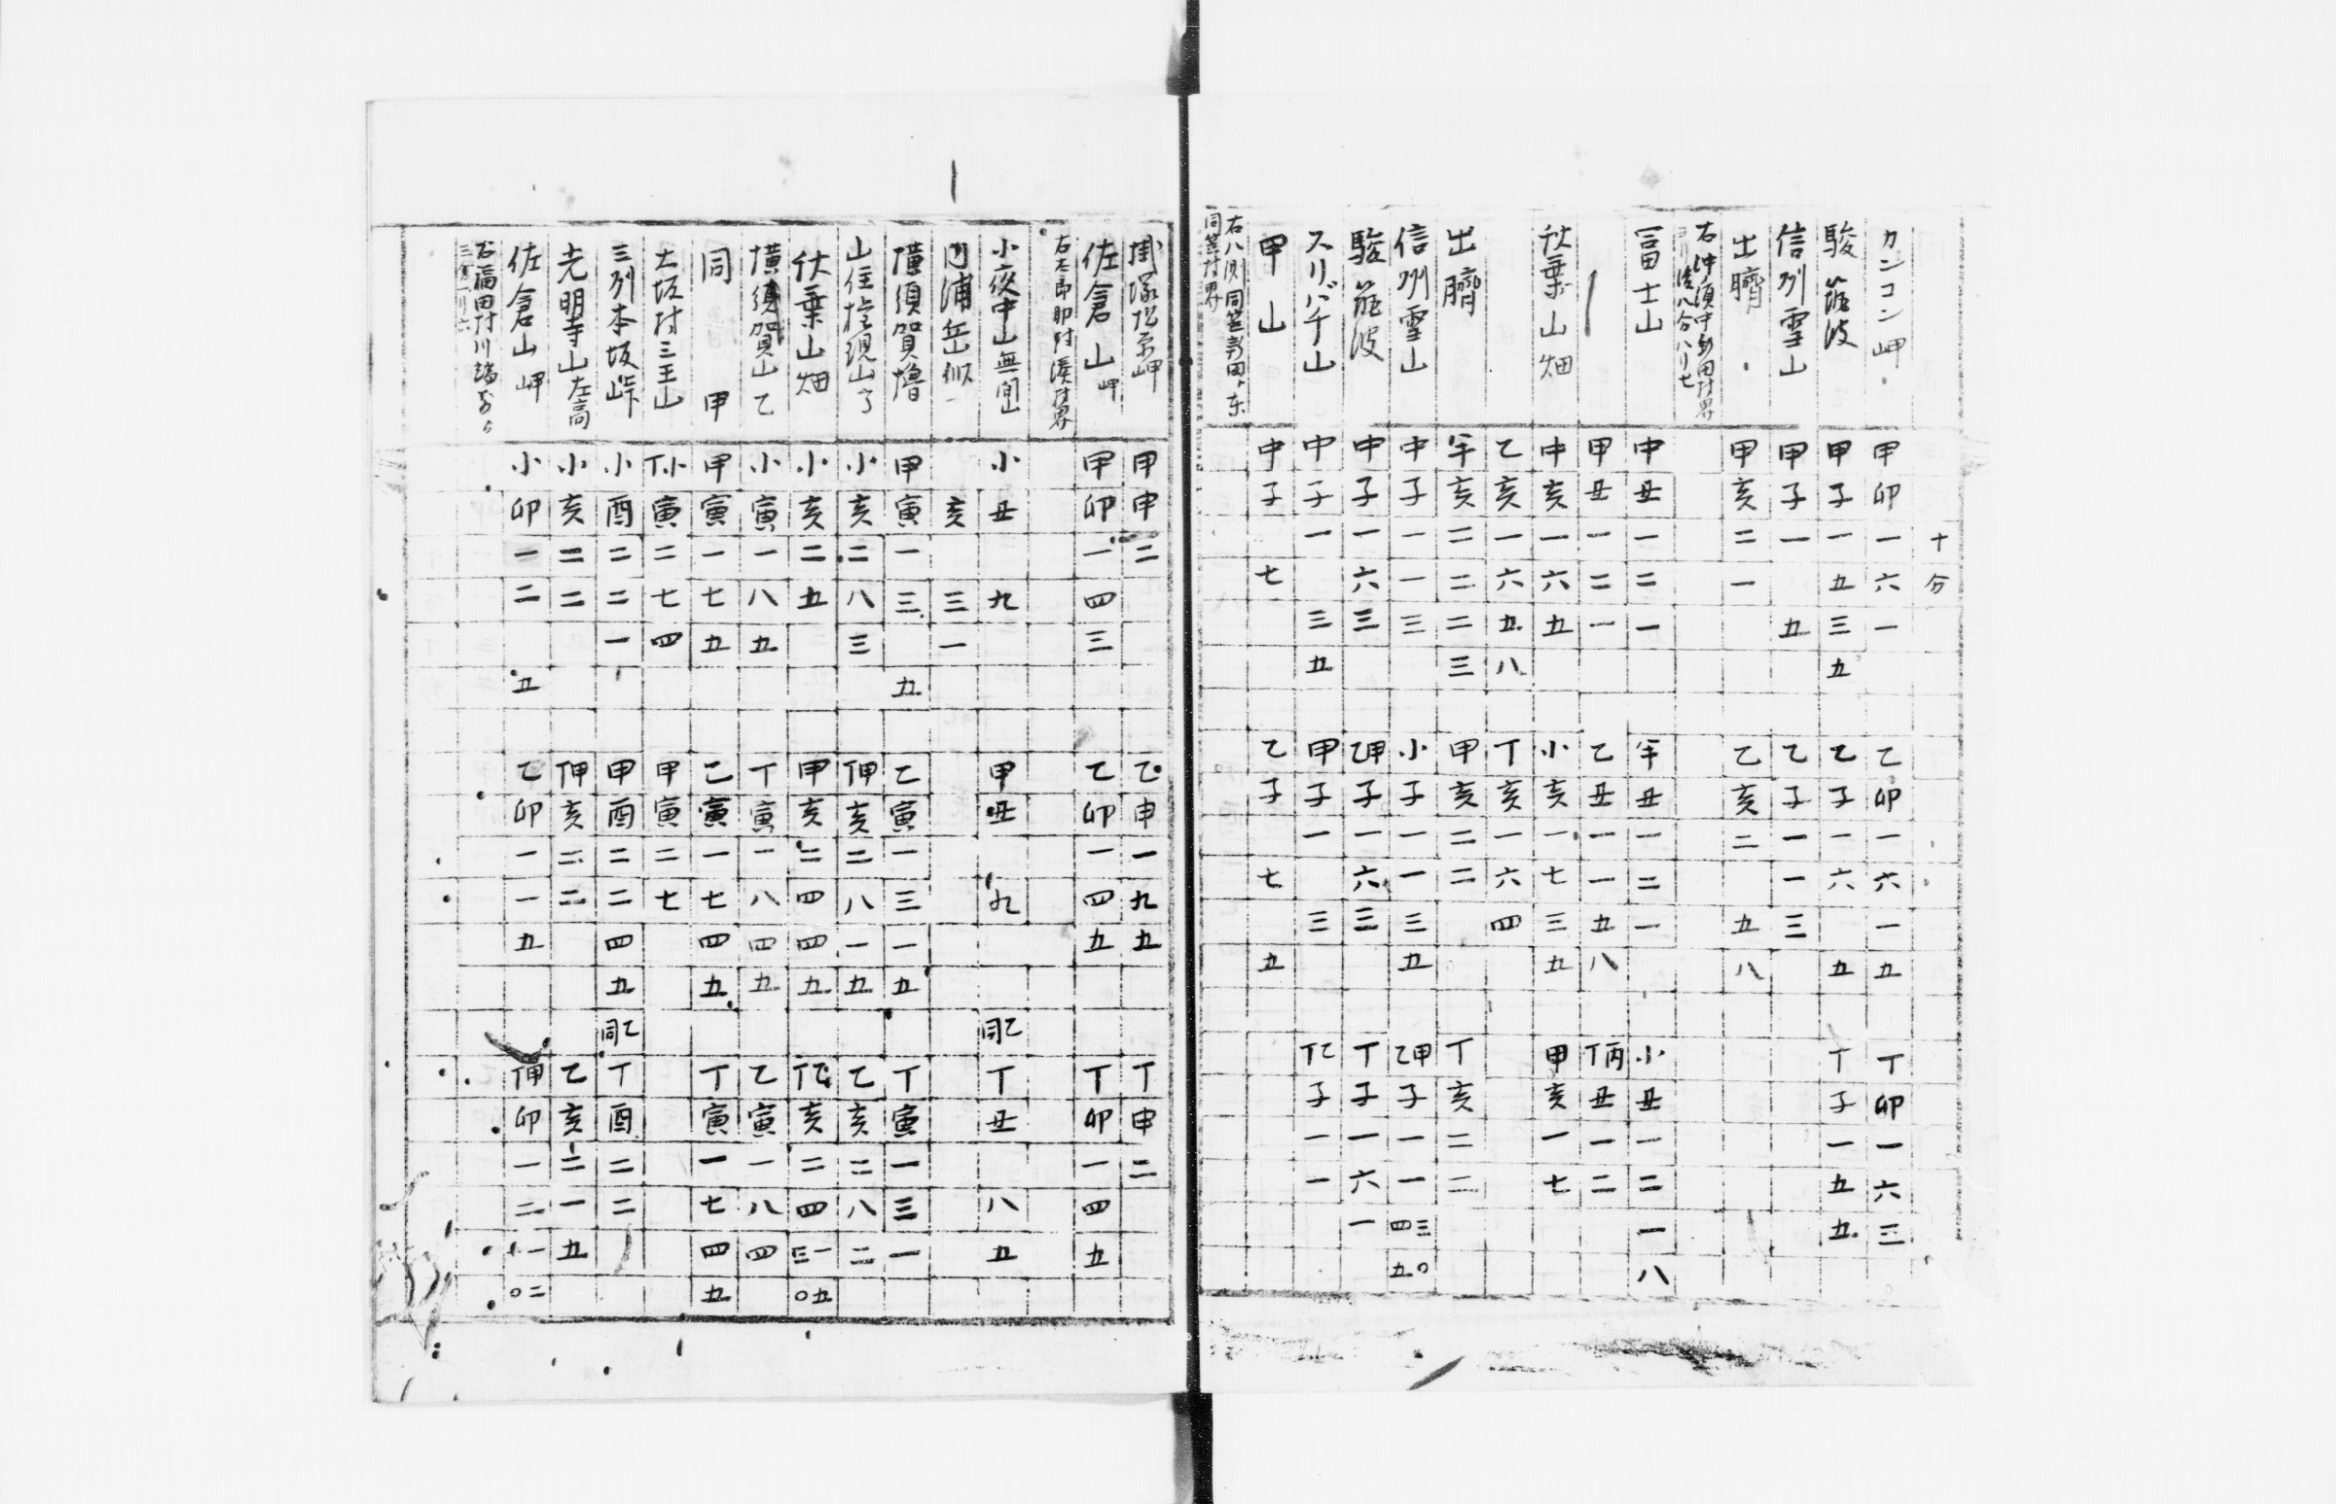 十分
カンコン岬 甲卯一六一 乙卯一六一五 丁卯一六三
駿 筑波 甲子一五三五 乙子一六五 丁子一五五
信州雪山 甲子一五 乙子一一三
出臍 甲亥二一 乙亥二五八
右沖ノ須中新田村界
冨士山 中丑一二一 午丑一二一 小丑一二一八
甲丑一二一 乙丑一一五八 丁丙丑一二
秋葉山畑 中亥一六五 小亥一七三五 甲亥一七
乙亥一六五八 丁亥一六四
出臍 午亥二二二三 甲亥二二 丁亥二二
信州雪山 中子一一三 小子一一三五 乙甲子一一四三五〇
駿 筑波 中子一六三 乙甲子一六三 丁子一六一
スリバチ山 中子一三五 甲子一三 丁乙子一一
甲山 中子七 乙子七五
右八測同笠新田ヽ東
同笠村界
掛塚松原岬 甲申二 乙申一九五 丁申二
佐倉山岬 甲卯一四三 乙卯一四五 丁卯一四五
右太郎助村湊村界
小夜中山無間山 小丑九 甲丑九 同乙丁丑八五
内浦岳似 亥三一
横須賀櫓 甲寅一三五 乙寅一三一五 丁寅一三一
山住権現山 小亥二八三 丁甲亥二八一五 乙亥二八二
秋葉山畑 小亥二五 甲亥二四四五 丁乙亥二四三一〇五
横須賀山乙 小寅一八五 丁寅一八四五 乙寅一八四
同 甲 甲寅一七五 乙寅一七四五 丁寅一七四五
大坂村三王山 丁小寅二七四 甲寅二七
三州本坂峠 小酉二二一 甲酉二二四五 同乙丁酉二二
光明寺山左高 小亥二二 丁甲亥二二 乙亥二一五
佐倉山岬 小卯一二五 乙卯一一五 丁甲卯一二小一〇二
右福田村川端